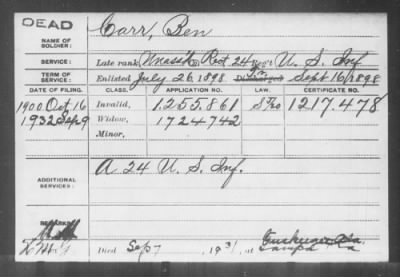 DEAD
NAME OF SOLDIER: Carr, Ben
SERVICE: Late rank Unassd Rct. 24 Reg't U. S. Inf
TERM OF SERVICE: Enlisted July 26 1898 Discharged Sept 16 1898
DATE OF FILING. CLASS. APPLICATION NO. LAW. CERTIFICATE NO.
1900 Oct 16 Invalid, 1.255.861 1.217.478
1932 Sep 9 Widow, 1724742
Minor,
ADDITIONAL SERVICES: A. 24 U. S. Inf.
REMARKS:
Died Sep 7, 1931, at Tuskegee Ala.